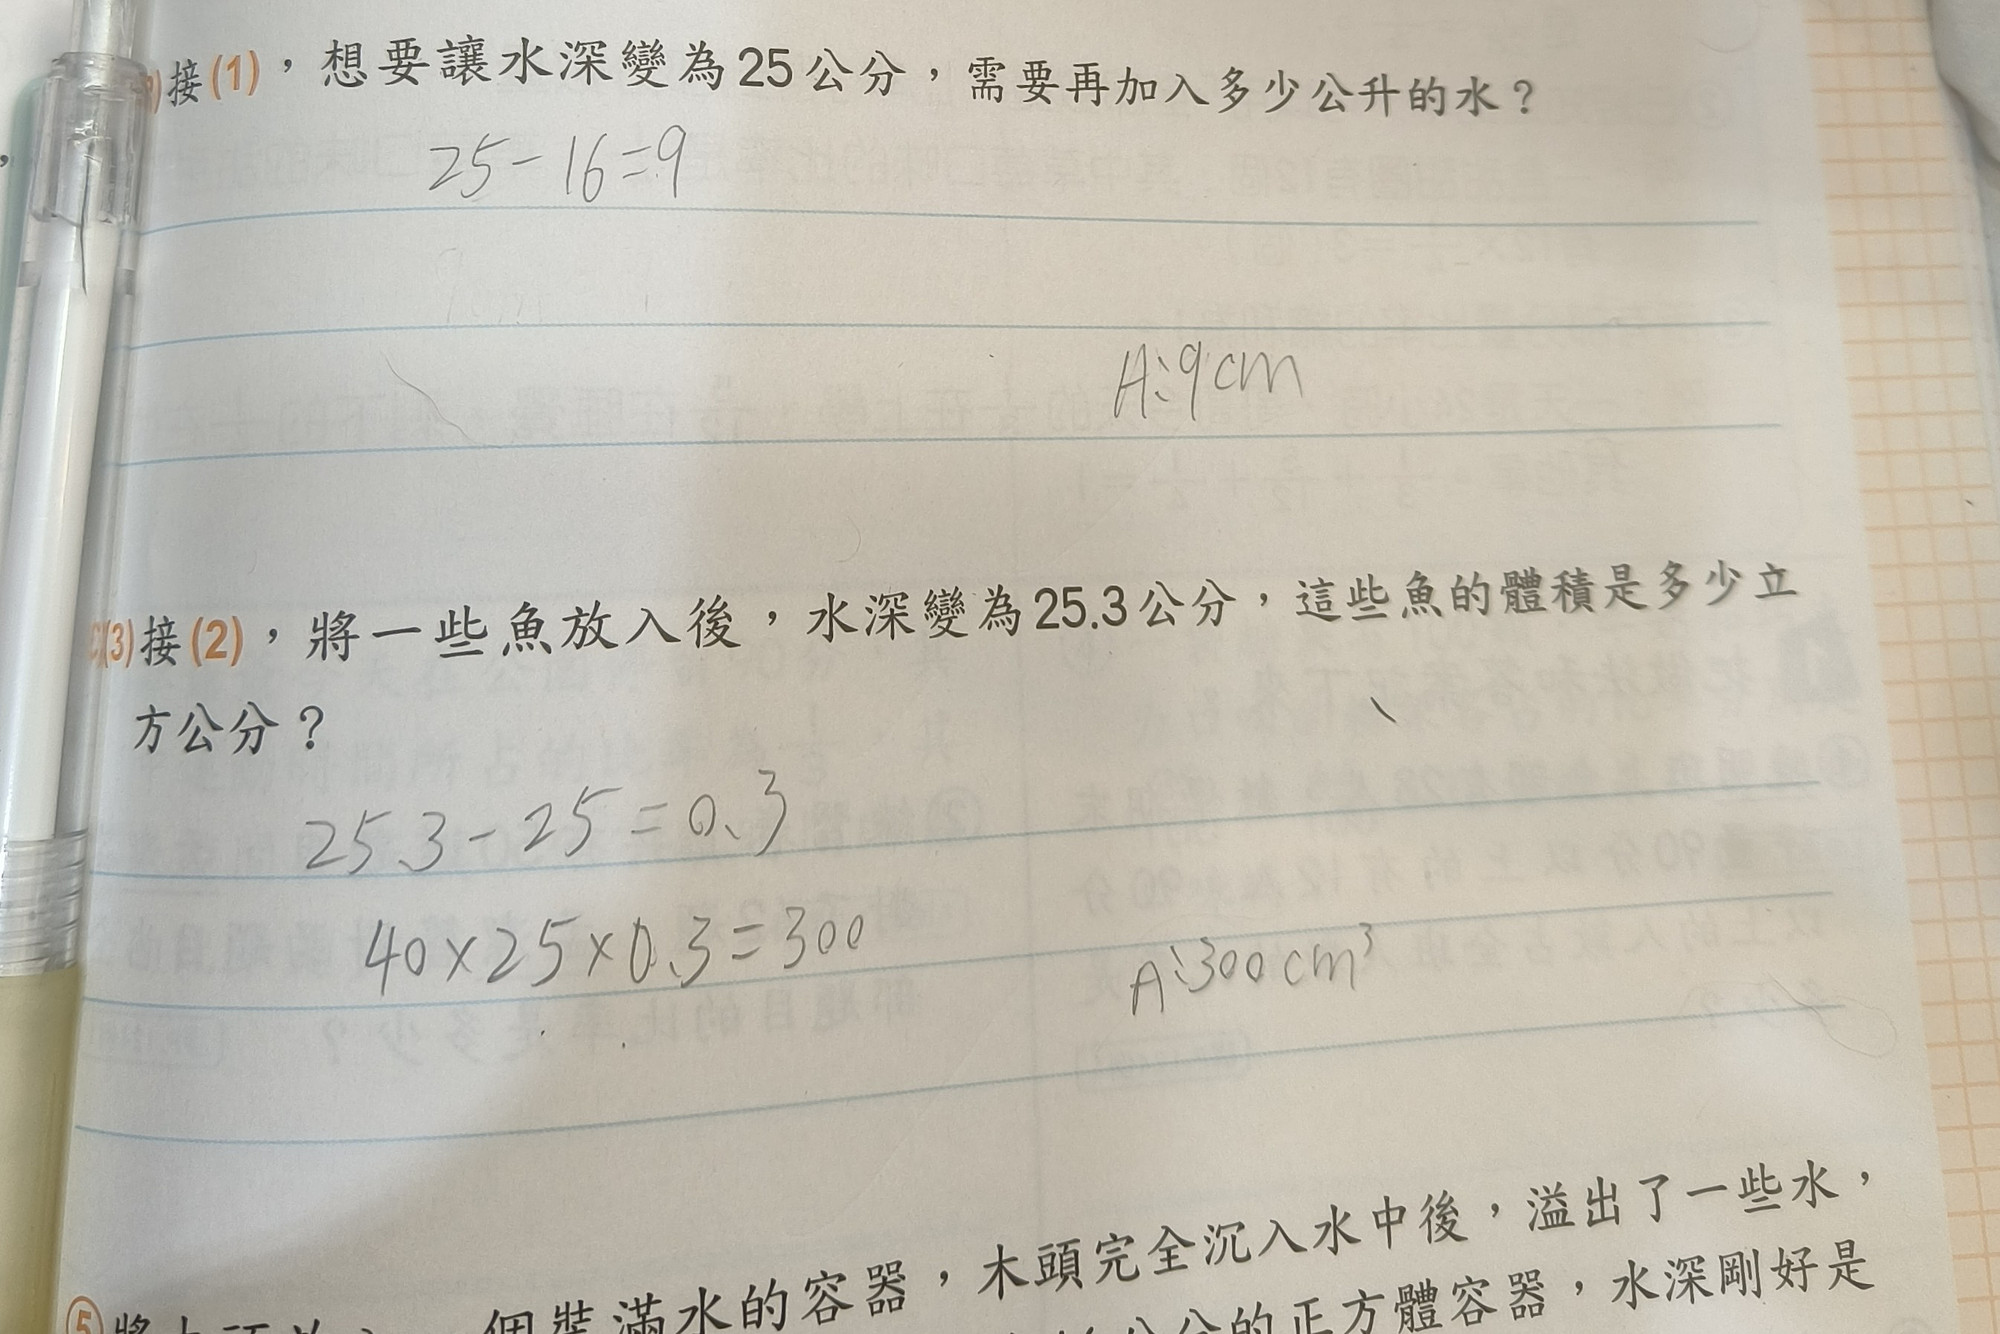 接(1)，想要讓水深變為25公分，需要再加入多少公升的水？
25-16=9
A:9cm
(3)接(2)，將一些魚放入後，水深變為25.3公分，這些魚的體積是多少立
方公分？
25.3-25=0.3
40×25×0.3=300
A:300cm³
⑤將 個裝滿水的容器，木頭完全沉入水中後，溢出了一些水，
公分的正方體容器，水深剛好是